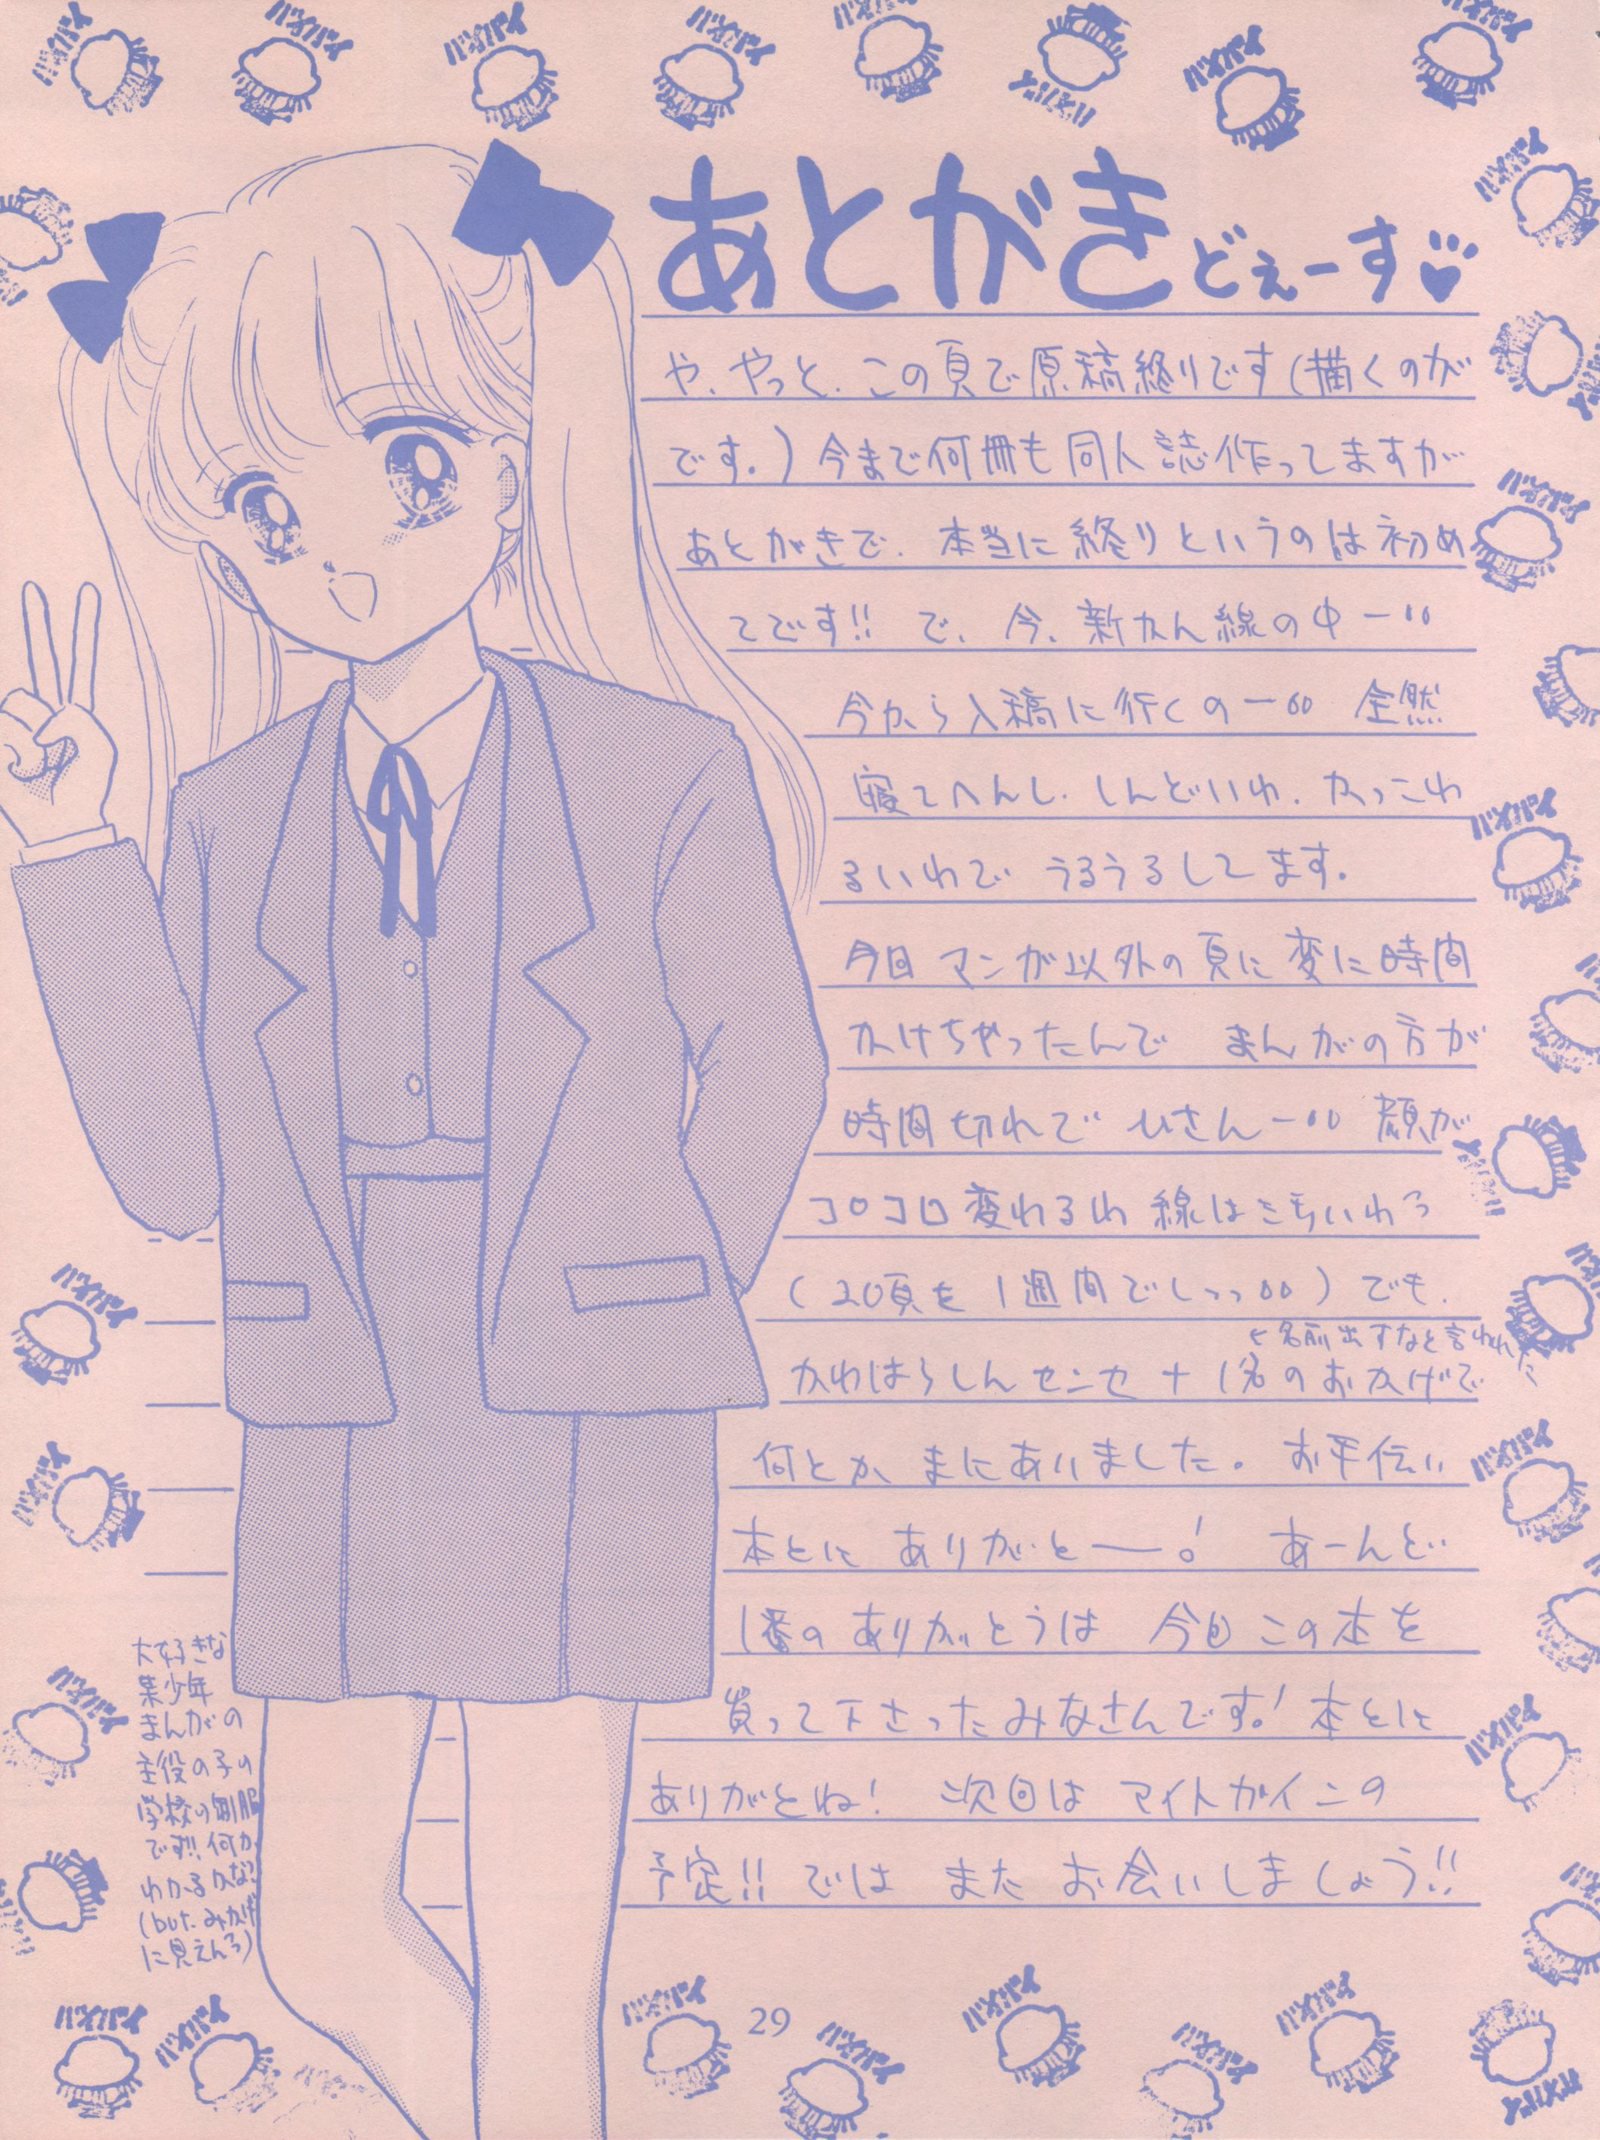 あとがき どぇーす
や、やっと、この頁で原稿終りです(描くのが
です。)今まで何冊も同人誌作ってますが
あとがきで、本当に終りというのは初め
てです!! で、今、新かん線の中ー
今から入稿に行くのー 全然
寝てへんし、しんどいわ、かっこわ
るいわで うるうるしてます。
今回マンガ以外の頁に変に時間
かけちゃったんで まんがの方が
時間切れで ひさんー 顔が
コロコロ変わるわ 線はきちゃいわっ
(20頁を1週間でしっっ)でも、
←名前出すなと言われた
かわはらしんセンセ+1名のおかげで
何とか、まにあいました。お手伝い
本とに ありがとー! あーんど
1番のありがとうは 今回この本を
買って下さったみなさんです!本とに
ありがとね! 次回はマイトガインの
予定!! では また お会いしましょう!!
大好きな
某少年
まんがの
主役の子の
学校の制服
です!!何か
わかるかな?
(but. みかげ
に見えんっ)
29